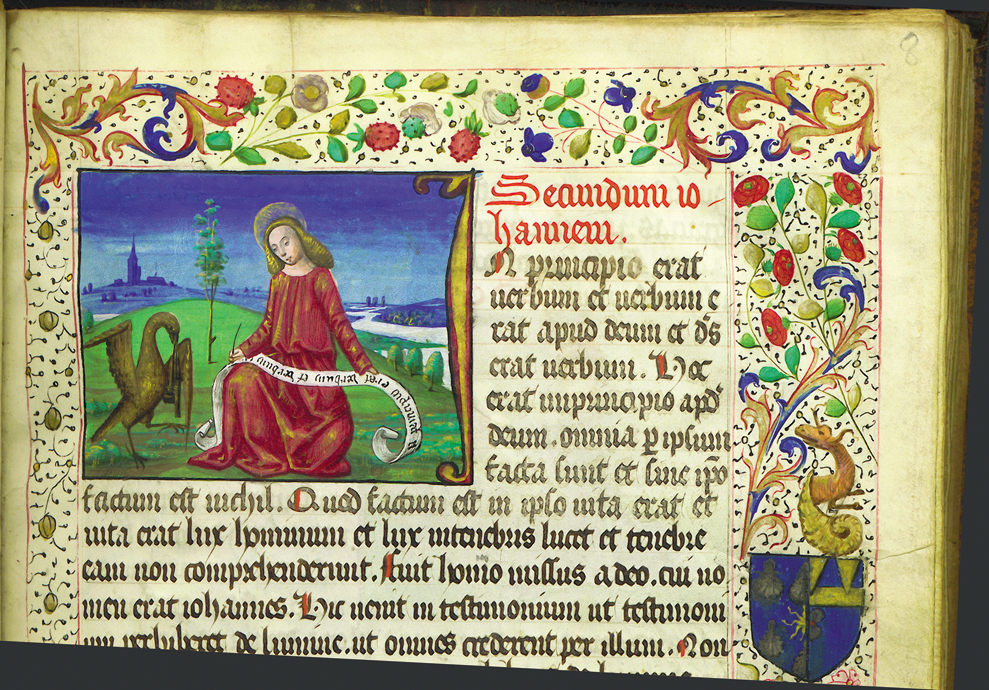 8
Secundum io-
hannem.
In principio erat
uerbum et uerbum e
rat apud deum et d̄s
erat uerbum. Hoc
erat in principio apd̄
deum. omnia ꝑ ipsum
facta sunt et sine ip̄o
factum est nichil. Quod factum est in ipso uita erat et
uita erat lux hominum et lux in tenebris lucet et tenebre
eam non comprehenderunt. Fuit homo missus a deo. cui no
men erat iohannes. Hic uenit in testimonium ut testimoni
um perhiberet de lumine. ut omnes crederent per illum. Non
In principio erat verbum et verbum